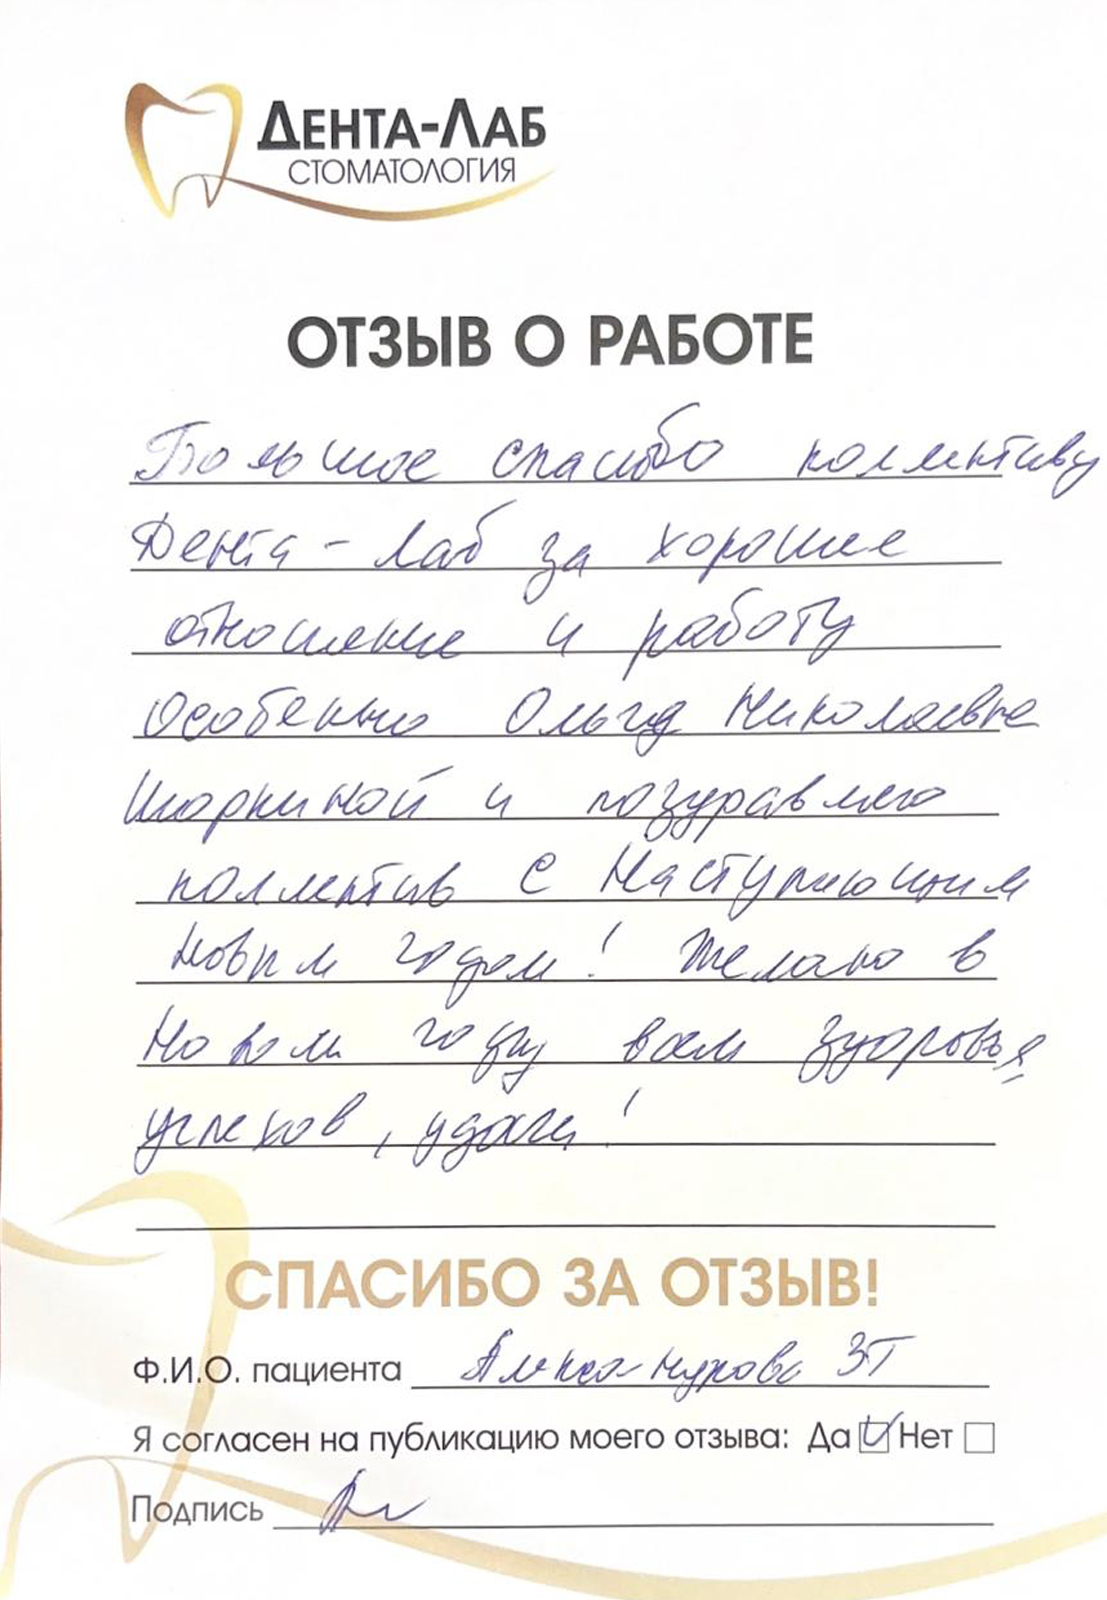 ДЕНТА-ЛАБ
СТОМАТОЛОГИЯ
ОТЗЫВ О РАБОТЕ
Большое спасибо коллективу
Дента-Лаб за хорошее
отношение и работу
особенно Ольгу Николаевне
Шоркиной и поздравляю
коллектив с Наступающим
Новым годом! Желаю в
Новом году всем здоровья,
успехов, удачи!
СПАСИБО ЗА ОТЗЫВ!
Ф.И.О. пациента Александрова ЗТ
Я согласен на публикацию моего отзыва: Да Нет
Подпись